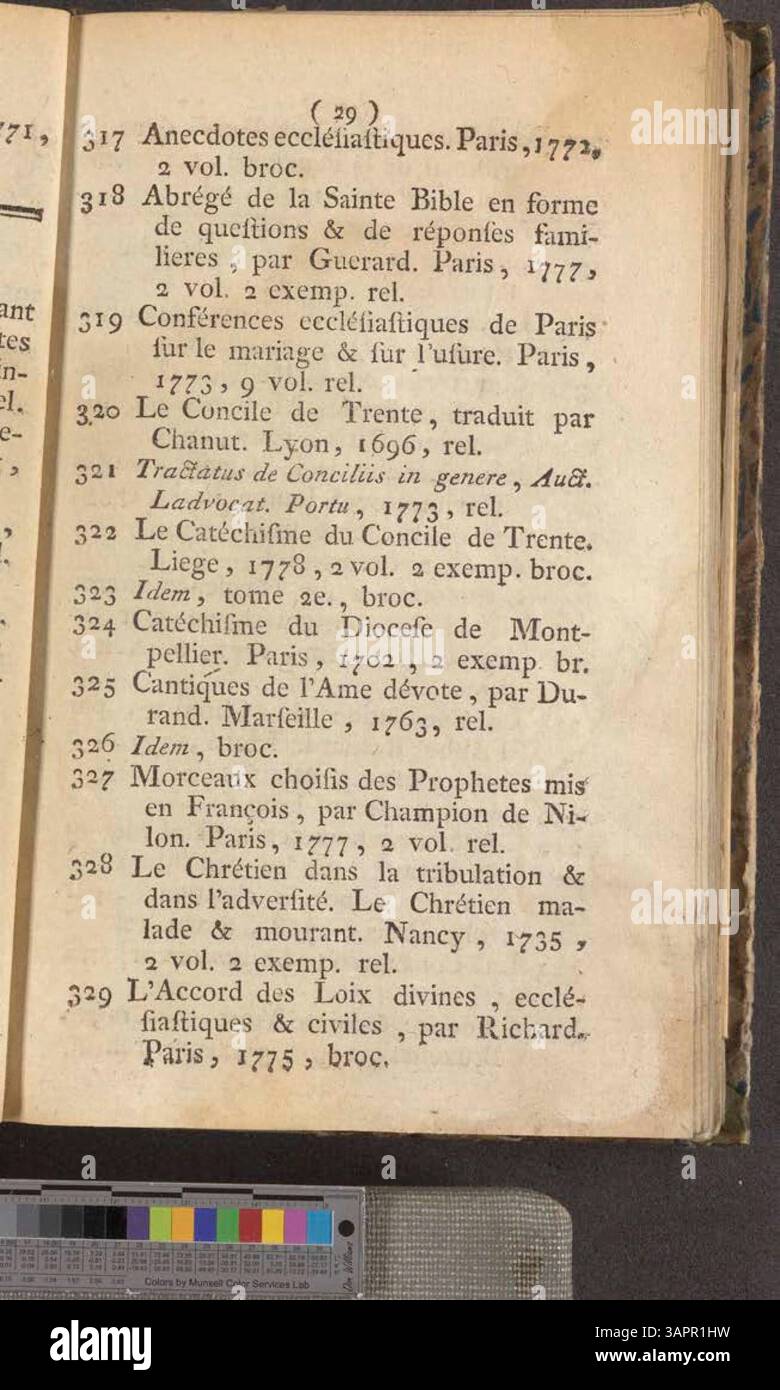 ( 29 )
317 Anecdotes eccléſiaſtiques. Paris, 1772,
2 vol. broc.
318 Abrégé de la Sainte Bible en forme
de queſtions & de réponſes fami-
lieres, par Guerard. Paris, 1777,
2 vol. 2 exemp. rel.
319 Conférences eccléſiaſtiques de Paris
ſur le mariage & ſur l'uſure. Paris,
1773, 9 vol. rel.
320 Le Concile de Trente, traduit par
Chanut. Lyon, 1696, rel.
321 Tractatus de Conciliis in genere, Auct.
Ladvocat. Portu, 1773, rel.
322 Le Catéchiſme du Concile de Trente.
Liege, 1778, 2 vol. 2 exemp. broc.
323 Idem, tome 2e., broc.
324 Catéchiſme du Dioceſe de Mont-
pellier. Paris, 1702, 2 exemp. br.
325 Cantiques de l'Ame dévote, par Du-
rand. Marſeille, 1763, rel.
326 Idem, broc.
327 Morceaux choiſis des Prophetes mis
en François, par Champion de Ni-
lon. Paris, 1777, 2 vol. rel.
328 Le Chrétien dans la tribulation &
dans l'adverſité. Le Chrétien ma-
lade & mourant. Nancy, 1735,
2 vol. 2 exemp. rel.
329 L'Accord des Loix divines, ecclé-
ſiaſtiques & civiles, par Richard.
Paris, 1775, broc.
771,
ant
tes
in-
el.
e-
Colors by Munsell Color Services Lab
alamy
Image ID: 3APR1HW
www.alamy.com